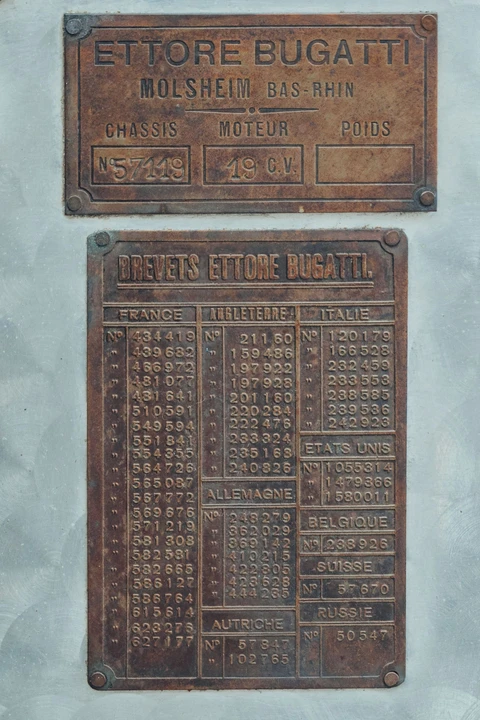 ETTORE BUGATTI
MOLSHEIM BAS-RHIN
CHASSIS MOTEUR POIDS
Nº 57119 19 C.V.
BREVETS ETTORE BUGATTI.
FRANCE
Nº 434419
" 439682
" 466972
" 481077
" 481641
" 510591
" 549594
" 551841
" 554355
" 564726
" 565087
" 567772
" 569676
" 571219
" 581308
" 582581
" 582665
" 586127
" 586764
" 615614
" 623276
" 627177
ANGLETERRE
Nº 21160
" 159486
" 197922
" 197928
" 201160
" 220284
" 222476
" 233324
" 235168
" 240826
ALLEMAGNE
Nº 248279
" 362029
" 369142
" 410215
" 422805
" 428628
" 444235
AUTRICHE
Nº 57847
" 102765
ITALIE
Nº 120179
" 166528
" 232459
" 233553
" 238585
" 239536
" 242923
ETATS UNIS
Nº 1055314
" 1479366
" 1580011
BELGIQUE
Nº 238926
SUISSE
Nº 57670
RUSSIE
Nº 50547